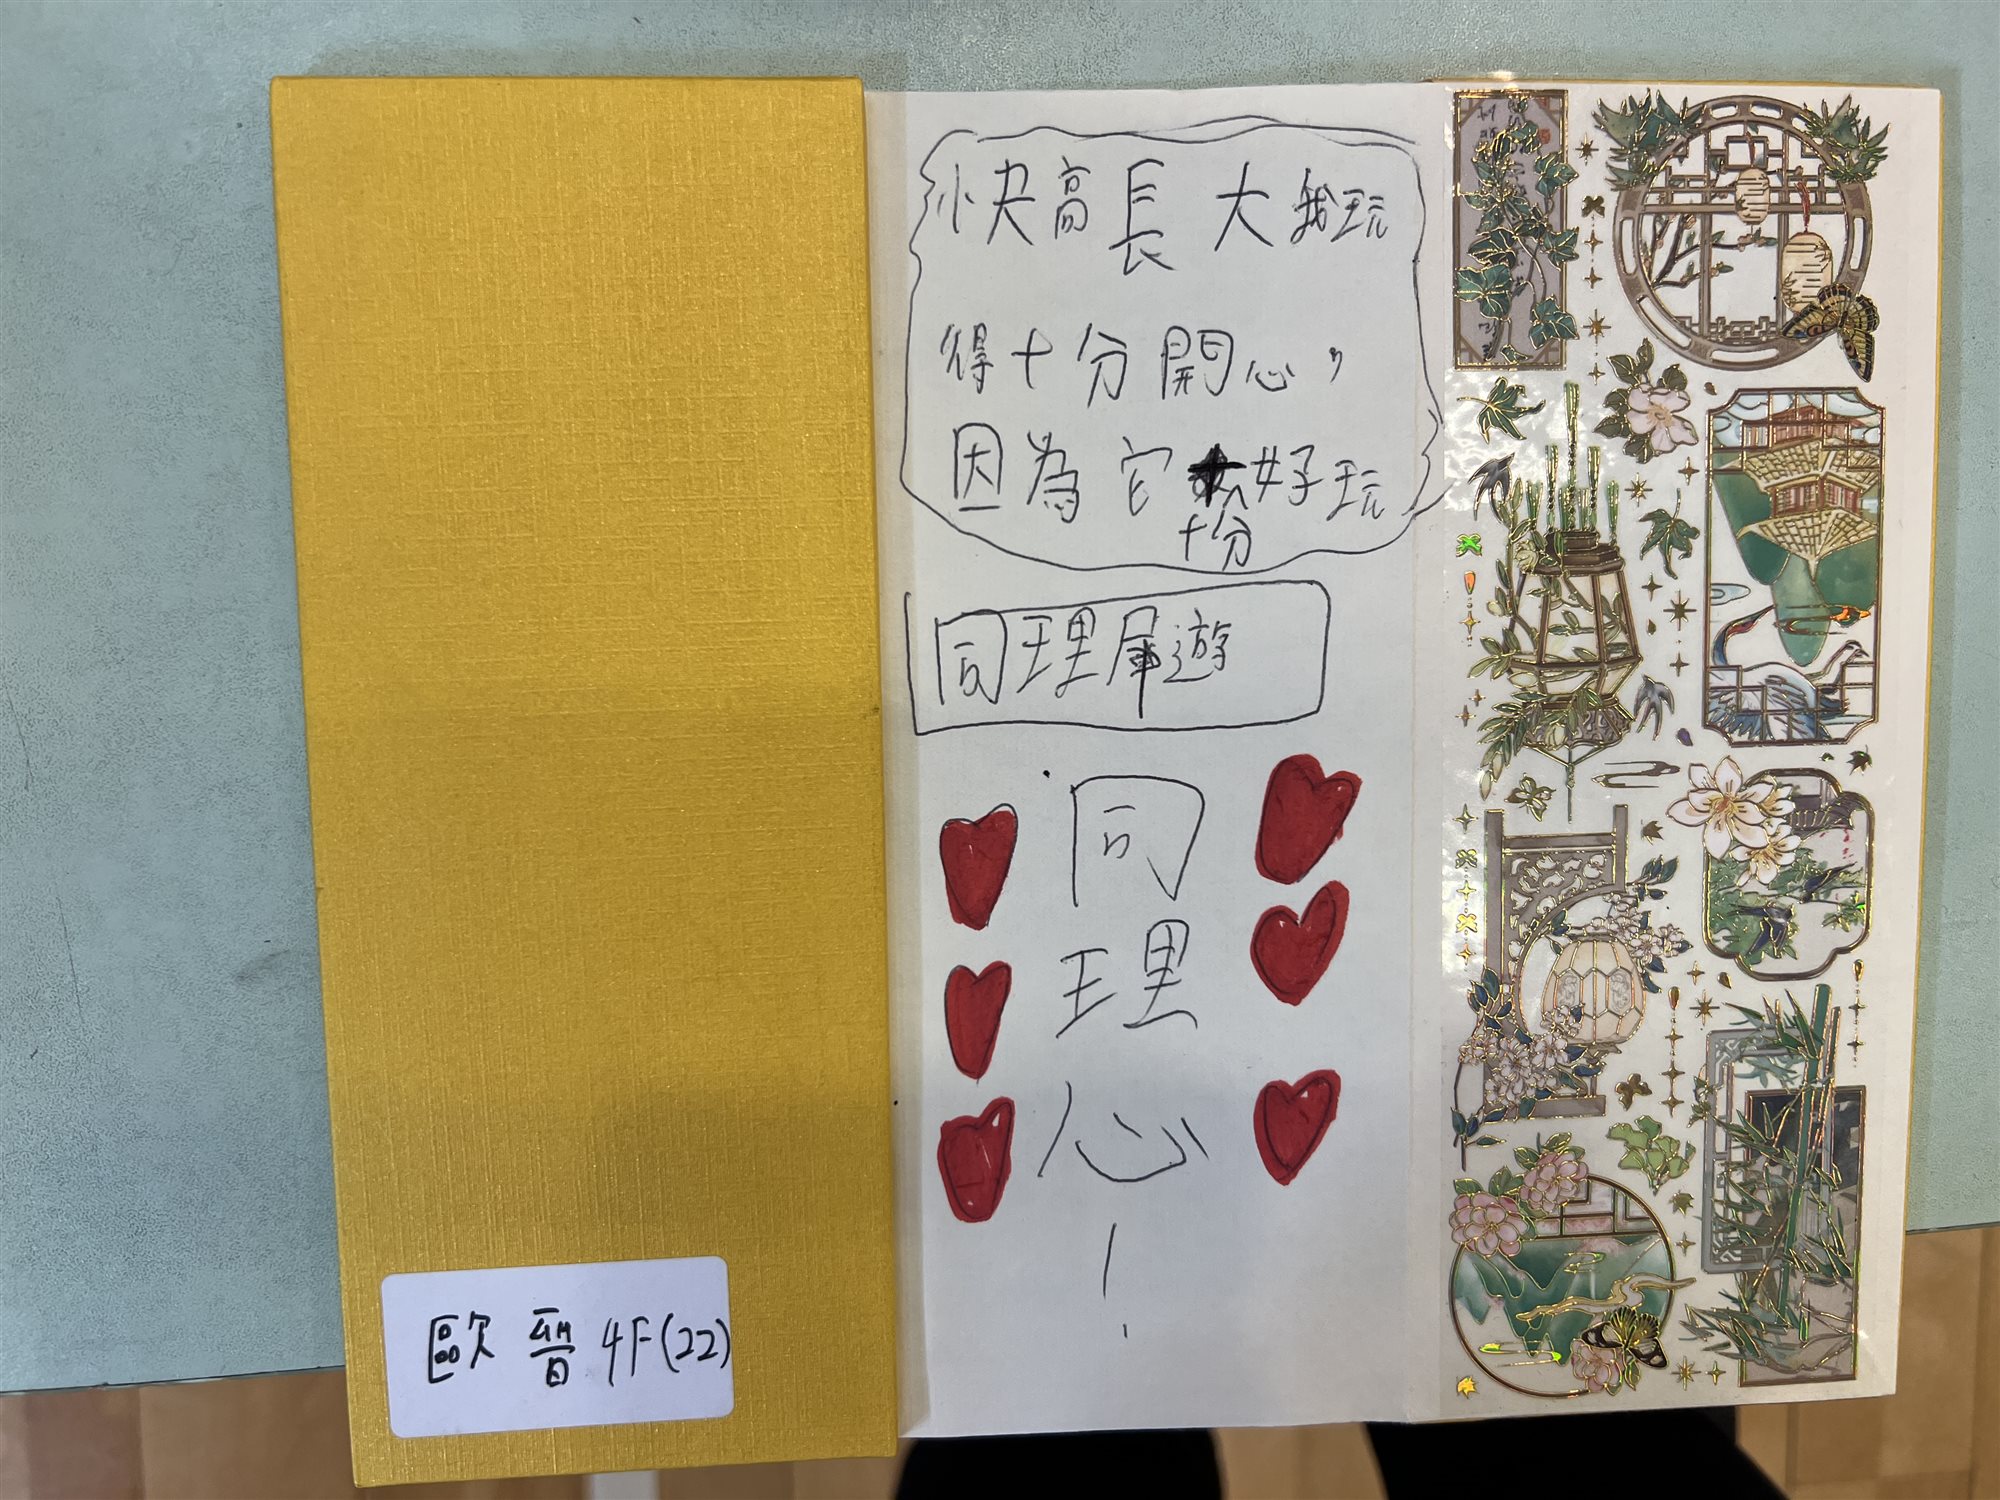 快高長大我玩
得十分開心，
因為它好玩
十分
同理犀遊
同
理
心
！
歐晉4F(22)